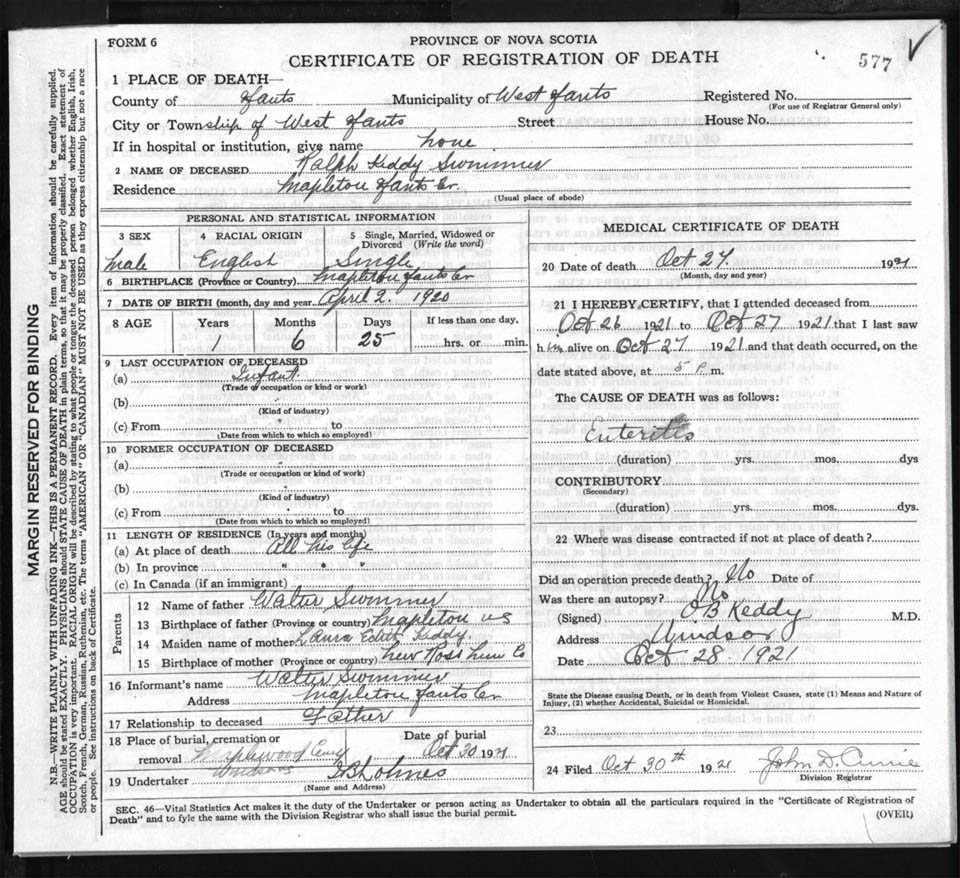 FORM 6
PROVINCE OF NOVA SCOTIA
CERTIFICATE OF REGISTRATION OF DEATH
577
1 PLACE OF DEATH—
County of Hants Municipality of West Hants Registered No.
(For use of Registrar General only)
City or Township of West Hants Street House No.
If in hospital or institution, give name home
2 NAME OF DECEASED Ralph Keddy Swimmer
Residence Mapleton Hants Co.
(Usual place of abode)
PERSONAL AND STATISTICAL INFORMATION
3 SEX 4 RACIAL ORIGIN 5 Single, Married, Widowed or Divorced (Write the word)
male English Single
6 BIRTHPLACE (Province or Country) Mapleton Hants Co
7 DATE OF BIRTH (month, day and year April 2. 1920
8 AGE Years Months Days If less than one day,
1 6 25 hrs. or min.
9 LAST OCCUPATION OF DECEASED
(a) Infant
(Trade or occupation or kind or work)
(b)
(Kind of industry)
(c) From to
(Date from which to which so employed)
10 FORMER OCCUPATION OF DECEASED
(a)
(Trade or occupation or kind or work)
(b)
(Kind of industry)
(c) From to
(Date from which to which so employed)
11 LENGTH OF RESIDENCE (In years and months)
(a) At place of death All his life
(b) In province " " "
(c) In Canada (if an immigrant)
Parents
12 Name of father Walter Swimmer
13 Birthplace of father (Province or country) Mapleton
14 Maiden name of mother Laura Edith Keddy
15 Birthplace of mother (Province or country) New Ross Lun Co
16 Informant's name Walter Swimmer
Address Mapleton Hants Co
17 Relationship to deceased Father
18 Place of burial, cremation or removal Maplewood Cem Windsor
Date of burial Oct 30 1921
19 Undertaker
(Name and Address)
MEDICAL CERTIFICATE OF DEATH
20 Date of death Oct 27. 1921
(Month, day and year)
21 I HEREBY CERTIFY, that I attended deceased from
Oct 26 1921 to Oct 27 1921 that I last saw
him alive on Oct 27 1921 and that death occurred, on the
date stated above, at 5 P. m.
The CAUSE OF DEATH was as follows:
Enteritis
(duration) yrs. mos. dys
CONTRIBUTORY
(Secondary)
(duration) yrs. mos. dys.
22 Where was disease contracted if not at place of death?
Did an operation precede death? No Date of
Was there an autopsy? No
(Signed) O B Keddy M.D.
Address Windsor
Date Oct 28. 1921
State the Disease causing Death, or in death from Violent Causes, state (1) Means and Nature of
Injury, (2) whether Accidental, Suicidal or Homicidal.
23
24 Filed Oct 30th 1921 John D. Currie
Division Registrar
SEC. 46—Vital Statistics Act makes it the duty of the Undertaker or person acting as Undertaker to obtain all the particulars required in the "Certificate of Registration of
Death" and to fyle the same with the Division Registrar who shall issue the burial permit.
(OVER)
MARGIN RESERVED FOR BINDING
N.B.—WRITE PLAINLY WITH UNFADING INK—THIS IS A PERMANENT RECORD. Every item of information should be carefully supplied.
AGE should be stated EXACTLY. PHYSICIANS should STATE CAUSE OF DEATH in plain terms, so that it may be properly classified. Exact statement of
OCCUPATION is very important. RACIAL ORIGIN will be described by stating to what people or tongue the deceased person belonged whether English, Irish,
Scotch, French, German, Russian, Ruthenian, etc. The terms "AMERICAN" OR "CANADIAN" MUST NOT BE USED as they express citizenship but not a race
or people. See instructions on back of Certificate.